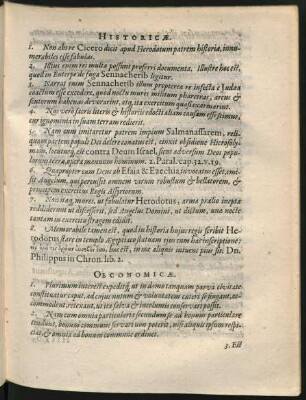 HISTORICÆ.
1. Non abs re Cicero dicit apud Herodotum patrem historiæ, innu-
merabiles esse fabulas.
2. Illius enim rei multa possunt proferri documenta. Illustre hoc est,
quod in Euterpe de fuga Sennacherib legitur.
3. Narrat enim Sennacherib illum propterea re infecta è Judæa
coactum esse excedere, quod nocte mures multum pharetras, arcus &
scutorum habenas devorarint, atq; ita exercitum quasi exarmarint.
4. Nos verò sacris literis & historiis edocti aliam causam esse scimus,
cur ignominia in suam terram redierit.
5. Nam cum imitaretur patrem impium Salmanassarem, reli-
quam partem populi Dei delere conatus est, cinxit obsidione Hierosoly-
mam, locutus est contra Deum Israel, sicut adversum Deos popu-
lorum terræ, opera manuum hominum. 2. Paral. cap. 32. v. 19.
6. Quapropter cum Deus ab Esaia & Ezechia invocatus esset, emi-
sit Angelum, qui percussit omnem virum robustum & bellatorem, &
principem exercitus Regis Assyriorum.
7. Non itaq, mures, ut fabulatur Herodotus, arma prælio inepta
reddiderunt ut discesserit, sed Angelus Domini, ut dictum, una nocte
tantam in castris stragem edidit.
8. Memorabile tamen est, quod in historia hujus regis scribit He-
rodotus stare in templo Ægyptiaco statuam ejus cum hac inscriptione:
in me aliquis intuens pius sit. Dn.
Philippus in Chron. lib. 2.
OECONOMICÆ.
1. Plurimum interest expeditq; ut in domo tanquam parva civitate
constituatur caput, ad cujus nutum & voluntatem cæteri se jungant, ac-
commodent
2. Nam cum omnia particularia secundum se ad bonum particulare
tendant, bonum commune servari non poterit, nisi aliquis ipsum respi-
ciat, & omnia ad commune bonum ordinet.
3. Est